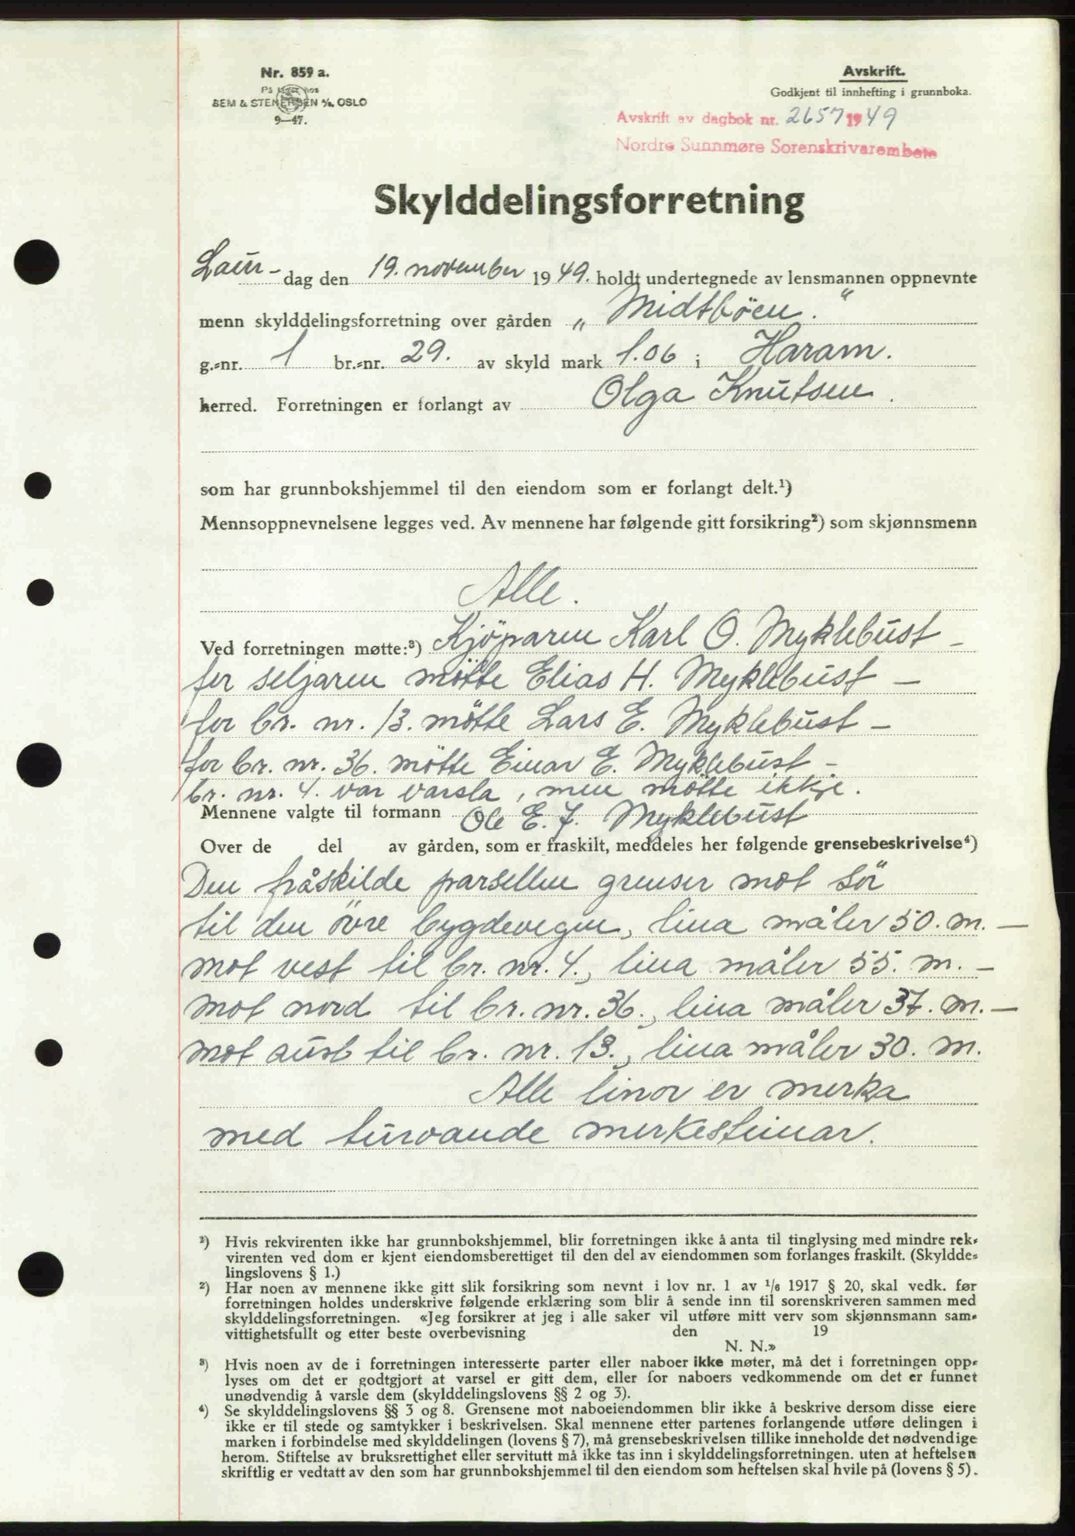 Nr. 859 a.
På lager hos
SEM & STENERSEN A/S, OSLO
9—47.
Avskrift.
Godkjent til innhefting i grunnboka.
Avskrift av dagbok nr. 2657 1949
Nordre Sunnmøre Sorenskrivarembete
Skylddelingsforretning
Laur-dag den 19. november 1949. holdt undertegnede av lensmannen oppnevnte
menn skylddelingsforretning over gården „Midtböen."
g.-nr. 1 br.-nr. 29. av skyld mark 1.06 i Haram.
herred. Forretningen er forlangt av Olga Knutsen.
som har grunnbokshjemmel til den eiendom som er forlangt delt.¹)
Mennsoppnevnelsene legges ved. Av mennene har følgende gitt forsikring²) som skjønnsmenn
Alle.
Ved forretningen møtte:³) Kjöparen Karl O. Myklebust –
for seljaren møtte Elias H. Myklebust –
for br. nr. 13. møtte Lars E. Myklebust –
for br. nr. 36. møtte Einar E. Myklebust –
br. nr. 4. var varsla, men møtte ikkje.
Mennene valgte til formann Ole E. J. Myklebust
Over de del av gården, som er fraskilt, meddeles her følgende grensebeskrivelse⁴)
Den fråskilde parsellen grenser mot sör
til den övre bygdevegen, lina måler 50. m. –
mot vest til br. nr. 4., lina måler 55. m. –
mot nord til br. nr. 36., lina måler 37. m. –
mot aust til br. nr. 13., lina måler 30. m.
Alle linor er merka
med turvande merkesteinar.
²) Hvis rekvirenten ikke har grunnbokshjemmel, blir forretningen ikke å anta til tinglysing med mindre rek-
virenten ved dom er kjent eiendomsberettiget til den del av eiendommen som forlanges fraskilt. (Skyldde-
lingslovens § 1.)
²) Har noen av mennene ikke gitt slik forsikring som nevnt i lov nr. 1 av 1/6 1917 § 20, skal vedk. før
forretningen holdes underskrive følgende erklæring som blir å sende inn til sorenskriveren sammen med
skylddelingsforretningen. «Jeg forsikrer at jeg i alle saker vil utføre mitt verv som skjønnsmann sam-
vittighetsfullt og etter beste overbevisning den 19
N. N.»
³) Hvis noen av de i forretningen interesserte parter eller naboer ikke møter, må det i forretningen opp-
lyses om det er godtgjort at varsel er gitt dem, eller for naboers vedkommende om det er funnet
unødvendig å varsle dem (skylddelingslovens §§ 2 og 3).
⁴) Se skylddelingslovens §§ 3 og 8. Grensene mot naboeiendommen blir ikke å beskrive dersom disse eiere
ikke er til stede og samtykker i beskrivelsen. Skal mennene etter partenes forlangende utføre delingen i
marken i forbindelse med skylddelingen (lovens § 7), må grensebeskrivelsen tillike inneholde det nødvendige
herom. Stiftelse av bruksrettighet eller servitutt må ikke tas inn i skylddelingsforretningen. uten at heftelsen
skriftlig er vedtatt av den som har grunnbokshjemmel til den eiendom som heftelsen skal hvile på (lovens § 5).